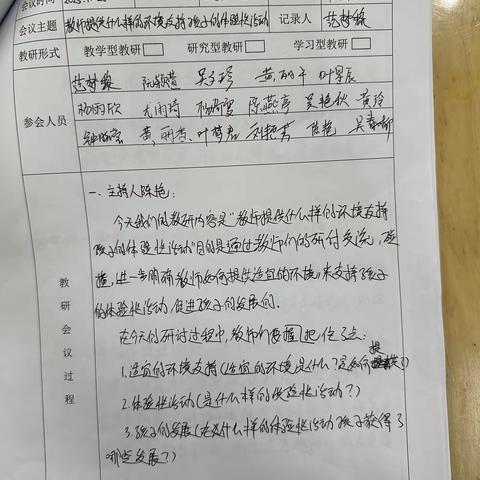 会议时间 2023.11.2
会议主题 教师提供什么样的环境支持孩子的体验性活动 记录人 范梦缘
教研形式 教学型教研□ 研究型教研□ 学习型教研□
范梦缘 阮颖菁 吴子珍 黄丽平 叶景辰
参会人员 杨雨欣 尤雨琦 杨晴雯 陈燕亭 吴艳秋 黄玲
钟晓宏 黄丽香 叶梦君 刘艳芳 陈艳 吴春
教研会议过程
一、主持人陈艳:
今天我们的教研内容是"教师提供什么样的环境支持
孩子的体验性活动"目的是通过教师们的研讨交流,碰
撞,进一步明确教师如何提供适宜的环境,来支持孩子
的体验性活动,促进孩子的发展的。
在今天的研讨过程中,教师们要握把住3点:
1.适宜的环境支持(适宜的环境是什么?是如何提供?)
2.体验性活动(是什么样的体验性活动?)
3.孩子的发展(在什么样的体验性活动孩子获得了
哪些发展?)